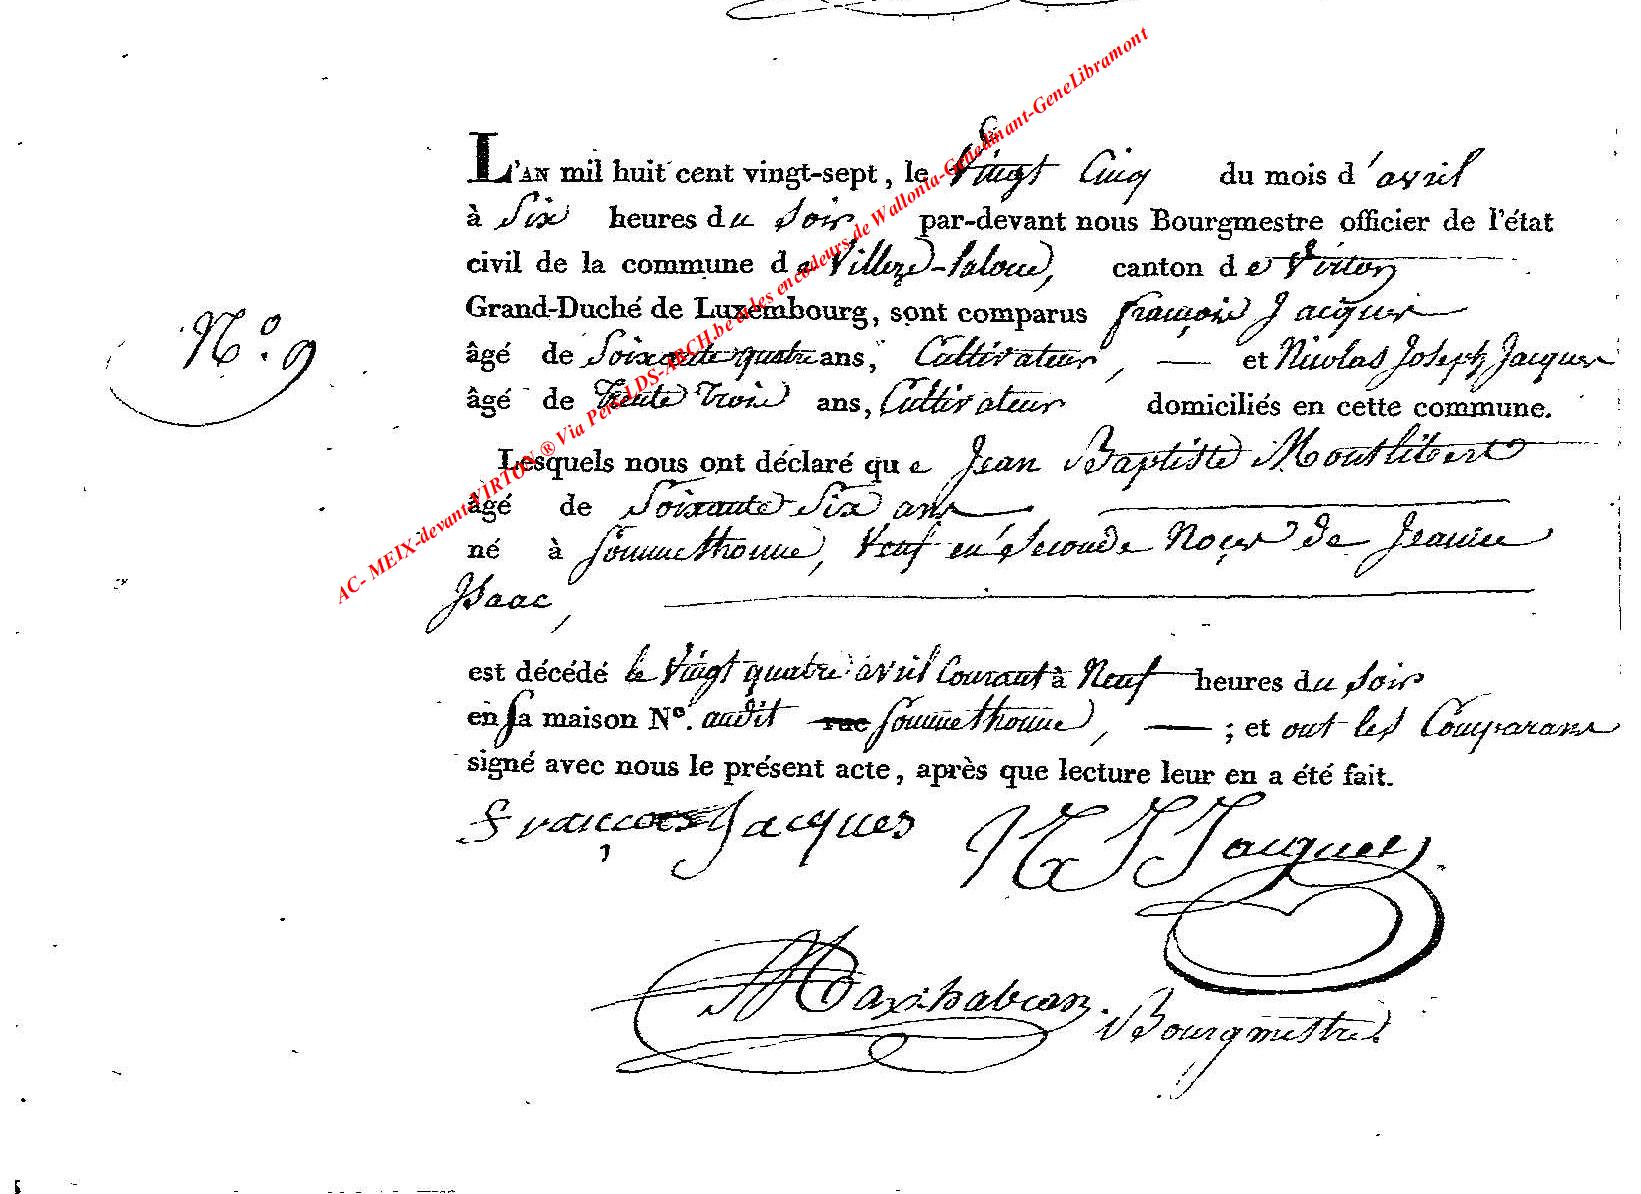 L'AN mil huit cent vingt-sept, le Vingt Cinq du mois d'avril
à Six heures du Soir par-devant nous Bourgmestre officier de l'état
civil de la commune de Villers-laloue, canton de Virton
Grand-Duché de Luxembourg, sont comparus françois Jacques
N.o 9
âgé de Soixante quatre ans, Cultivateur, — et Nicolas Joseph Jacques
âgé de Trente Trois ans, Cultivateur domiciliés en cette commune.
Lesquels nous ont déclaré que Jean Baptiste Montlibert
âgé de Soixante Six ans
né à Sommethonne, Veuf en Seconde Noces de Jeanne
Isaac,
est décédé le Vingt quatre avril Courant à Neuf heures du Soir
en sa maison No. audit rue Sommethonne, — ; et ont les Comparans
signé avec nous le présent acte, après que lecture leur en a été fait.
François Jacques N J Jacques
Bourgmestre
AC- MEIX-devant-VIRTON ® Via Pers LDS-ARCH.be et les encodeurs de Wallonia-Genedinant-GeneLibramont